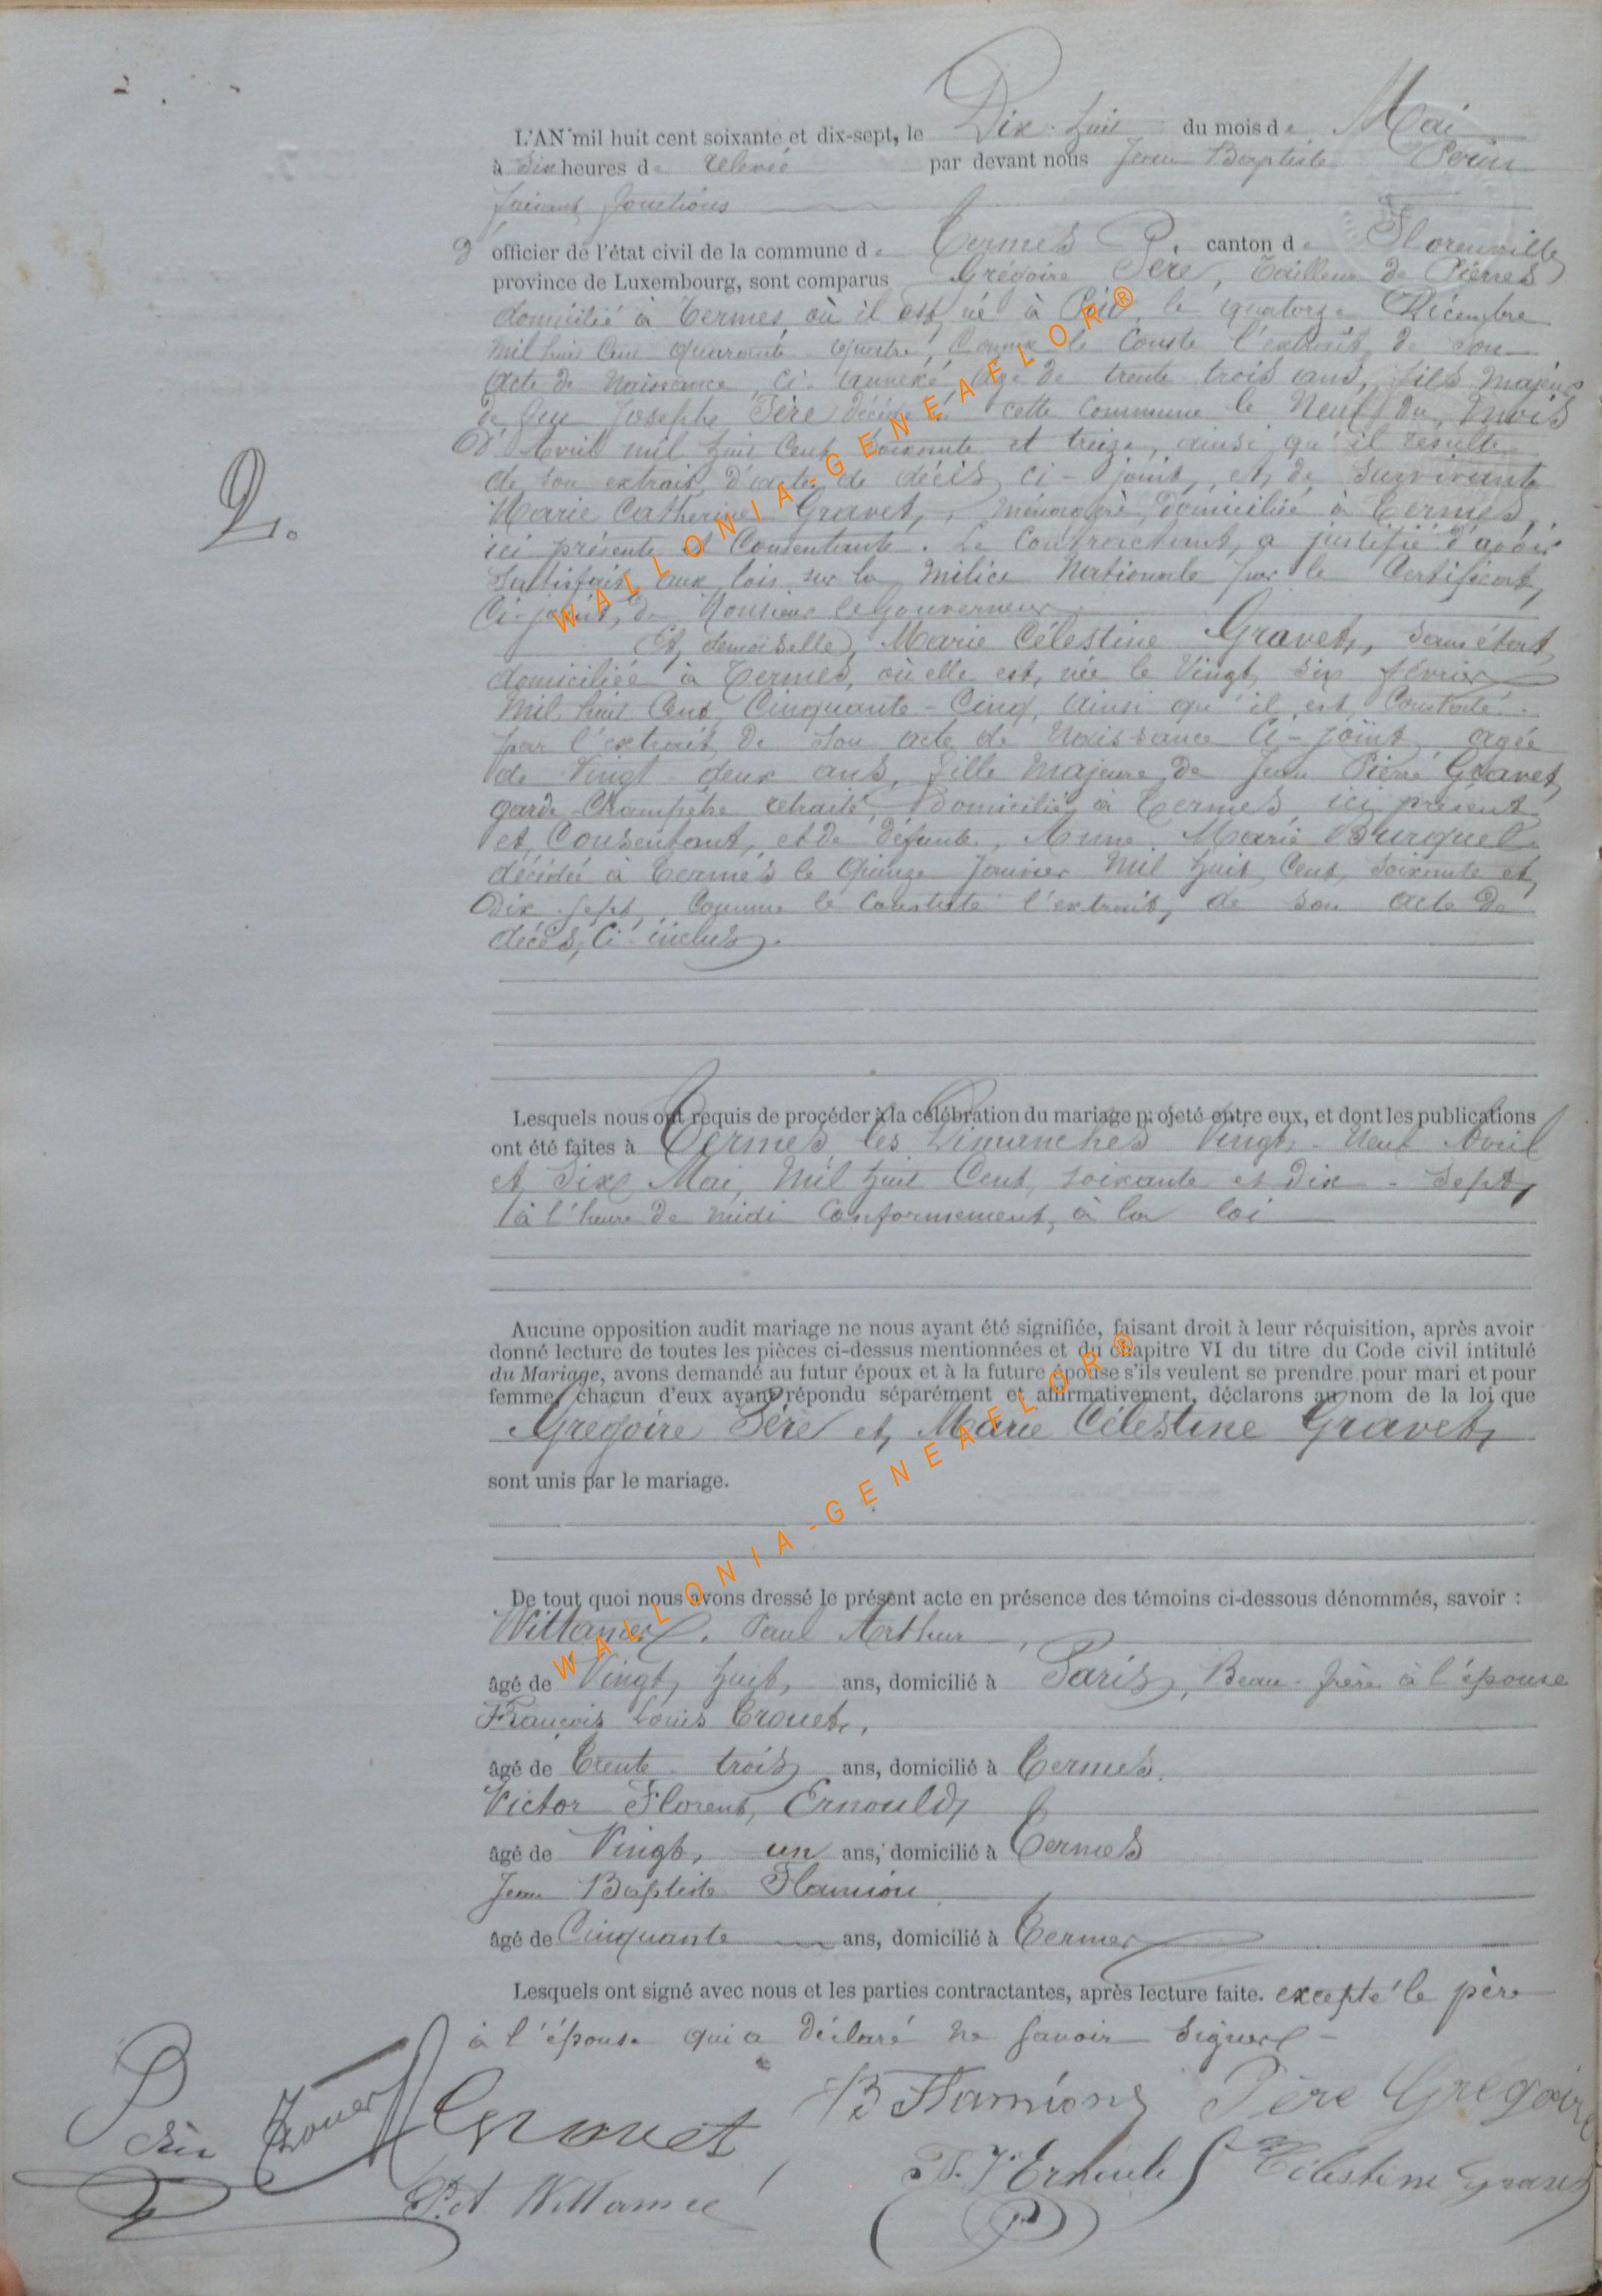 L'AN mil huit cent soixante et dix-sept, le Dix-huit du mois de Mai
à Six heures de relevée par devant nous Jean Baptiste Périn
faisant fonctions
d' officier de l'état civil de la commune de Termes P. canton de Florenville
province de Luxembourg, sont comparus Grégoire Père, Tailleur de Pierres
domicilié à Termes, où il est né à le quatorze Décembre
mil huit Cent quarante quatre, Comme le Conste l'extrait de Son
Acte de Naissance, Ci-annexé, âgé de trente trois ans, fils majeur
de feu Josephe Père décédé cette Commune le Neuf du mois
d'Avril mil huit Cent Soixante et treize, ainsi qu'il résulte
de Son extrait d'acte de décès ci-joint, et de Survivante
Marie Catherine Gravet, ménagère, domiciliée à Termes,
ici présente et Consentante. Le Contractant, a justifié d'avoir
Satisfait aux lois sur la Milice Nationale par le Certificat,
Ci-joint, de Monsieur le Gouverneur
Et, demoiselle, Marie Célestine Gravet, Sans état,
domiciliée à Termes, où elle est, née le Vingt Six février
Mil huit Cent, Cinquante-Cinq, ainsi qu'il est, Constaté
par l'extrait, de Son acte de Naissance Ci-joint agée
de Vingt-deux ans, fille Majeure, de Jean Pierre Gravet,
garde-Champêtre retraité, domicilié à Termes, ici présent
et, Consentant, et de défunte, Anne Marie Burquel
décédée à Termes le quinze Janvier Mil huit, Cent, Soixante et,
Dix-Sept, Comme le Constate l'extrait, de son acte de
décès, Ci-inclus.
Lesquels nous ont requis de procéder à la célébration du mariage projeté entre eux, et dont les publications
ont été faites à Termes, les Dimanches Vingt-Neuf Avril
et, Six Mai, Mil huit Cent, soixante et dix-Sept,
à l'heure de midi Conformement, à la loi
Aucune opposition audit mariage ne nous ayant été signifiée, faisant droit à leur réquisition, après avoir
donné lecture de toutes les pièces ci-dessus mentionnées et du chapitre VI du titre du Code civil intitulé
du Mariage, avons demandé au futur époux et à la future épouse s'ils veulent se prendre pour mari et pour
femme, chacun d'eux ayant répondu séparément et affirmativement, déclarons au nom de la loi que
Grégoire Père et, Marie Célestine Gravet,
sont unis par le mariage.
De tout quoi nous avons dressé le présent acte en présence des témoins ci-dessous dénommés, savoir :
Wittamer, Paul Arthur
âgé de Vingt, huit, ans, domicilié à Paris, Beau-frère à l'épouse
François Louis Crouet,
âgé de Trente-trois ans, domicilié à Termes.
Victor Florent, Ernould,
âgé de Vingt, un ans, domicilié à Termes
Jean Baptiste Flamion
âgé de Cinquante ans, domicilié à Termes
Lesquels ont signé avec nous et les parties contractantes, après lecture faite. excepté le père
à l'épouse qui a déclaré ne Savoir Signer
JB Flamion Père Grégoire
Périn Crouet
Ernould Célestine Gravet
P. A Wittamer
2.
WALLONIA-GENEAFLOR®
WALLONIA-GENEAFLOR®